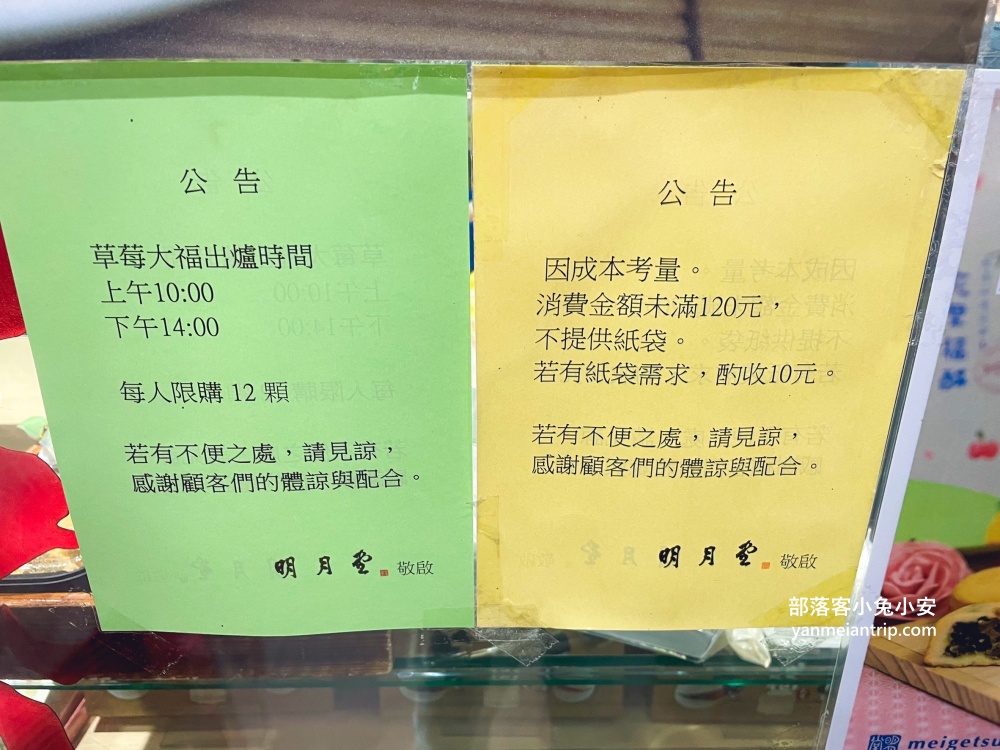 公 告
草莓大福出爐時間
上午10:00
下午14:00
每人限購 12 顆
若有不便之處，請見諒，
感謝顧客們的體諒與配合。
明月堂 敬啟
公 告
因成本考量。
消費金額未滿120元，
不提供紙袋。
若有紙袋需求，酌收10元。
若有不便之處，請見諒，
感謝顧客們的體諒與配合。
明月堂 敬啟
部落客小兔小安
yanmeiantrip.com
meigetsu